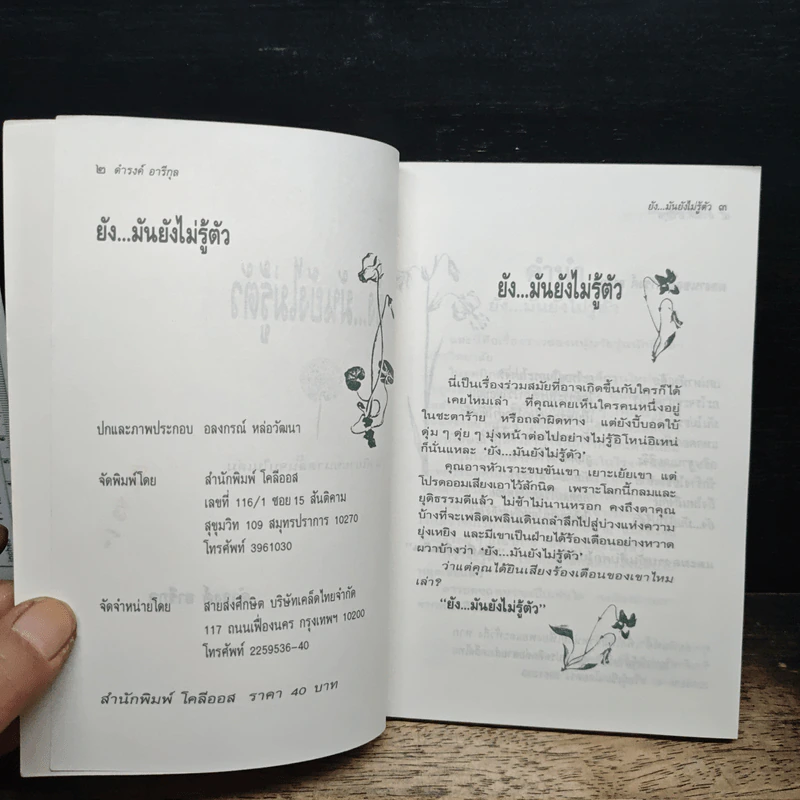 ๒ ดำรงค์ อารีกุล
ยัง...มันยังไม่รู้ตัว
ปกและภาพประกอบ อลงกรณ์ หล่อวัฒนา
จัดพิมพ์โดย สำนักพิมพ์ โคลีออส
เลขที่ 116/1 ซอย 15 สันติคาม
สุขุมวิท 109 สมุทรปราการ 10270
โทรศัพท์ 3961030
จัดจำหน่ายโดย สายส่งศึกษิต บริษัทเคล็ดไทยจำกัด
117 ถนนเฟื่องนคร กรุงเทพฯ 10200
โทรศัพท์ 2259536-40
สำนักพิมพ์ โคลีออส ราคา 40 บาท
ยัง...มันยังไม่รู้ตัว ๓
ยัง...มันยังไม่รู้ตัว
นี่เป็นเรื่องร่วมสมัยที่อาจเกิดขึ้นกับใครก็ได้
เคยไหมเล่า ที่คุณเคยเห็นใครคนหนึ่งอยู่
ในชะตาร้าย หรือถลำผิดทาง แต่ยังบี้บอดใบ้
ดุ่ม ๆ ดุ่ย ๆ มุ่งหน้าต่อไปอย่างไม่รู้อิโหน่อิเหน่
ก็นั่นแหละ ‘ยัง...มันยังไม่รู้ตัว’
คุณอาจหัวเราะขบขันเขา เยาะเย้ยเขา แต่
โปรดออมเสียงเอาไว้สักนิด เพราะโลกนี้กลมและ
ยุติธรรมดีแล้ว ไม่ช้าไม่นานหรอก คงถึงตาคุณ
บ้างที่จะเพลิดเพลินเดินถลำลึกไปสู่บ่วงแห่งความ
ยุ่งเหยิง และมีเขาเป็นฝ่ายได้ร้องเตือนอย่างหวาด
ผวาบ้างว่า ‘ยัง...มันยังไม่รู้ตัว’
ว่าแต่คุณได้ยินเสียงร้องเตือนของเขาไหม
เล่า?
“ยัง...มันยังไม่รู้ตัว”